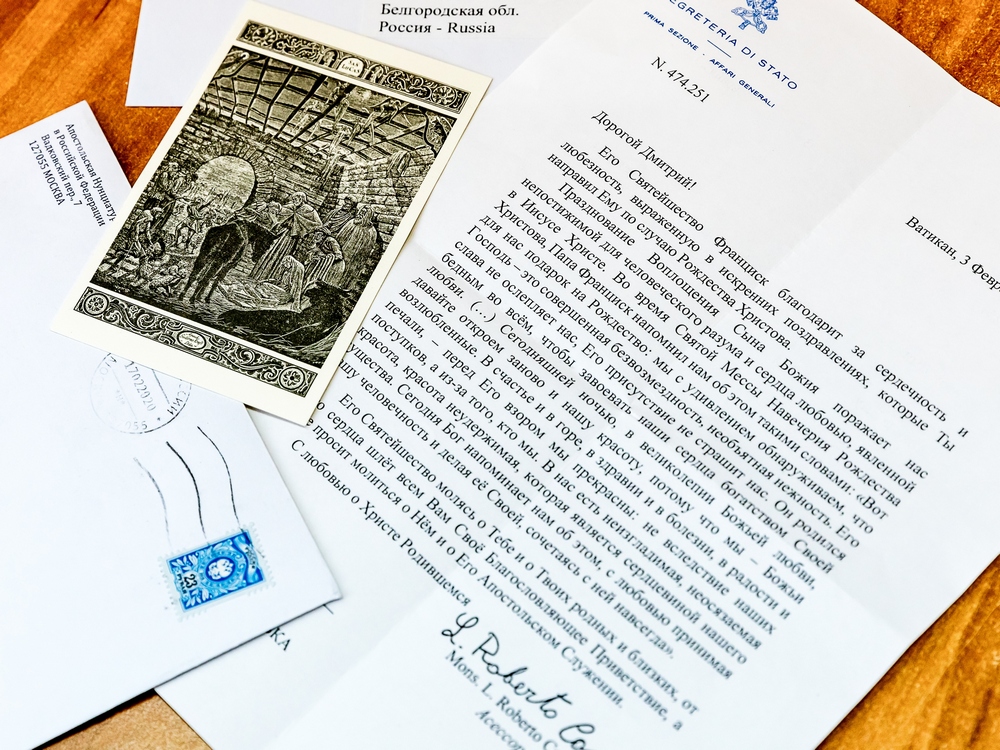 Белгородская обл.
Россия - Russia
Апостольская Нунциату
в Российской Федерации
Валковский пер., 7
127055 МОСКВА
23
EGRETERIA DI STATO
PRIMA SEZIONE - AFFARI GENERALI
N. 474.251
Ватикан, 3 Февр
Дорогой Дмитрий!
Его Святейшество Франциск благодарит за сердечность и
любезность, выраженную в искренних поздравлениях, которые Ты
направил Ему по случаю Рождества Христова.
Празднование Воплощения Сына Божия поражает нас
непостижимой для человеческого разума и сердца любовью, явленной
в Иисусе Христе. Во время Святой Мессы Навечерия Рождества
Христова, Папа Франциск напомнил нам об этом такими словами: «Вот
для нас подарок на Рождество: мы с удивлением обнаруживаем, что
Господь – это совершенная безвозмездность, необъятная нежность. Его
слава не ослепляет нас, Его присутствие не страшит нас. Он родился
бедным во всём, чтобы завоевать наши сердца богатством Своей
любви. (...) Сегодняшней ночью, в великолепии Божьей любви
давайте откроем заново и нашу красоту, потому что мы – Божьи
возлюбленные. В счастье и в горе, в здравии и в болезни, в радости и
печали, – перед Его взором мы прекрасны: не вследствие наших
поступков, а из-за того, кто мы. В нас есть неизгладимая, неосязаемая
красота, красота неудержимая, которая является сердцевиной нашего
ущества. Сегодня Бог напоминает нам об этом, с любовью принимая
шу человечность и делая её Своей, сочетаясь с ней навсегда».
Его Святейшество молясь о Тебе и о Твоих родных и близких, от
сердца шлёт всем Вам Своё Благословляющее Приветствие, а
просит молиться о Нём и о Его Апостольском Служении.
С любовью о Христе Родившемся
L Roberto Co
Mons. L. Roberto C
Асессор
КА